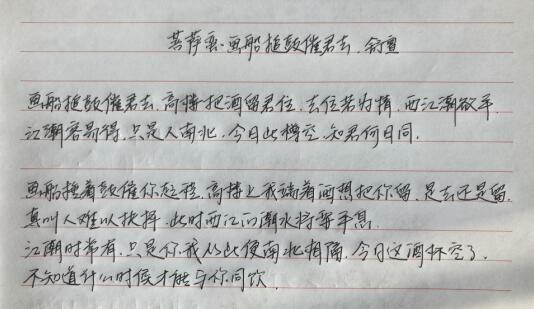 菩萨蛮·画船捶鼓催君去 舒亶
画船捶鼓催君去，高楼把酒留君住，去住若为情，西江潮欲平。
江潮容易得，只是人南北，今日此樽空，知君何日同。
画船捶着鼓催你起程，高楼上我端着酒想把你留，是去还是留，
真叫人难以抉择，此时西江的潮水将要平息。
江潮时常有，只是你我从此便南北相隔，今日这酒杯空了，
不知道什么时候才能与你同饮。